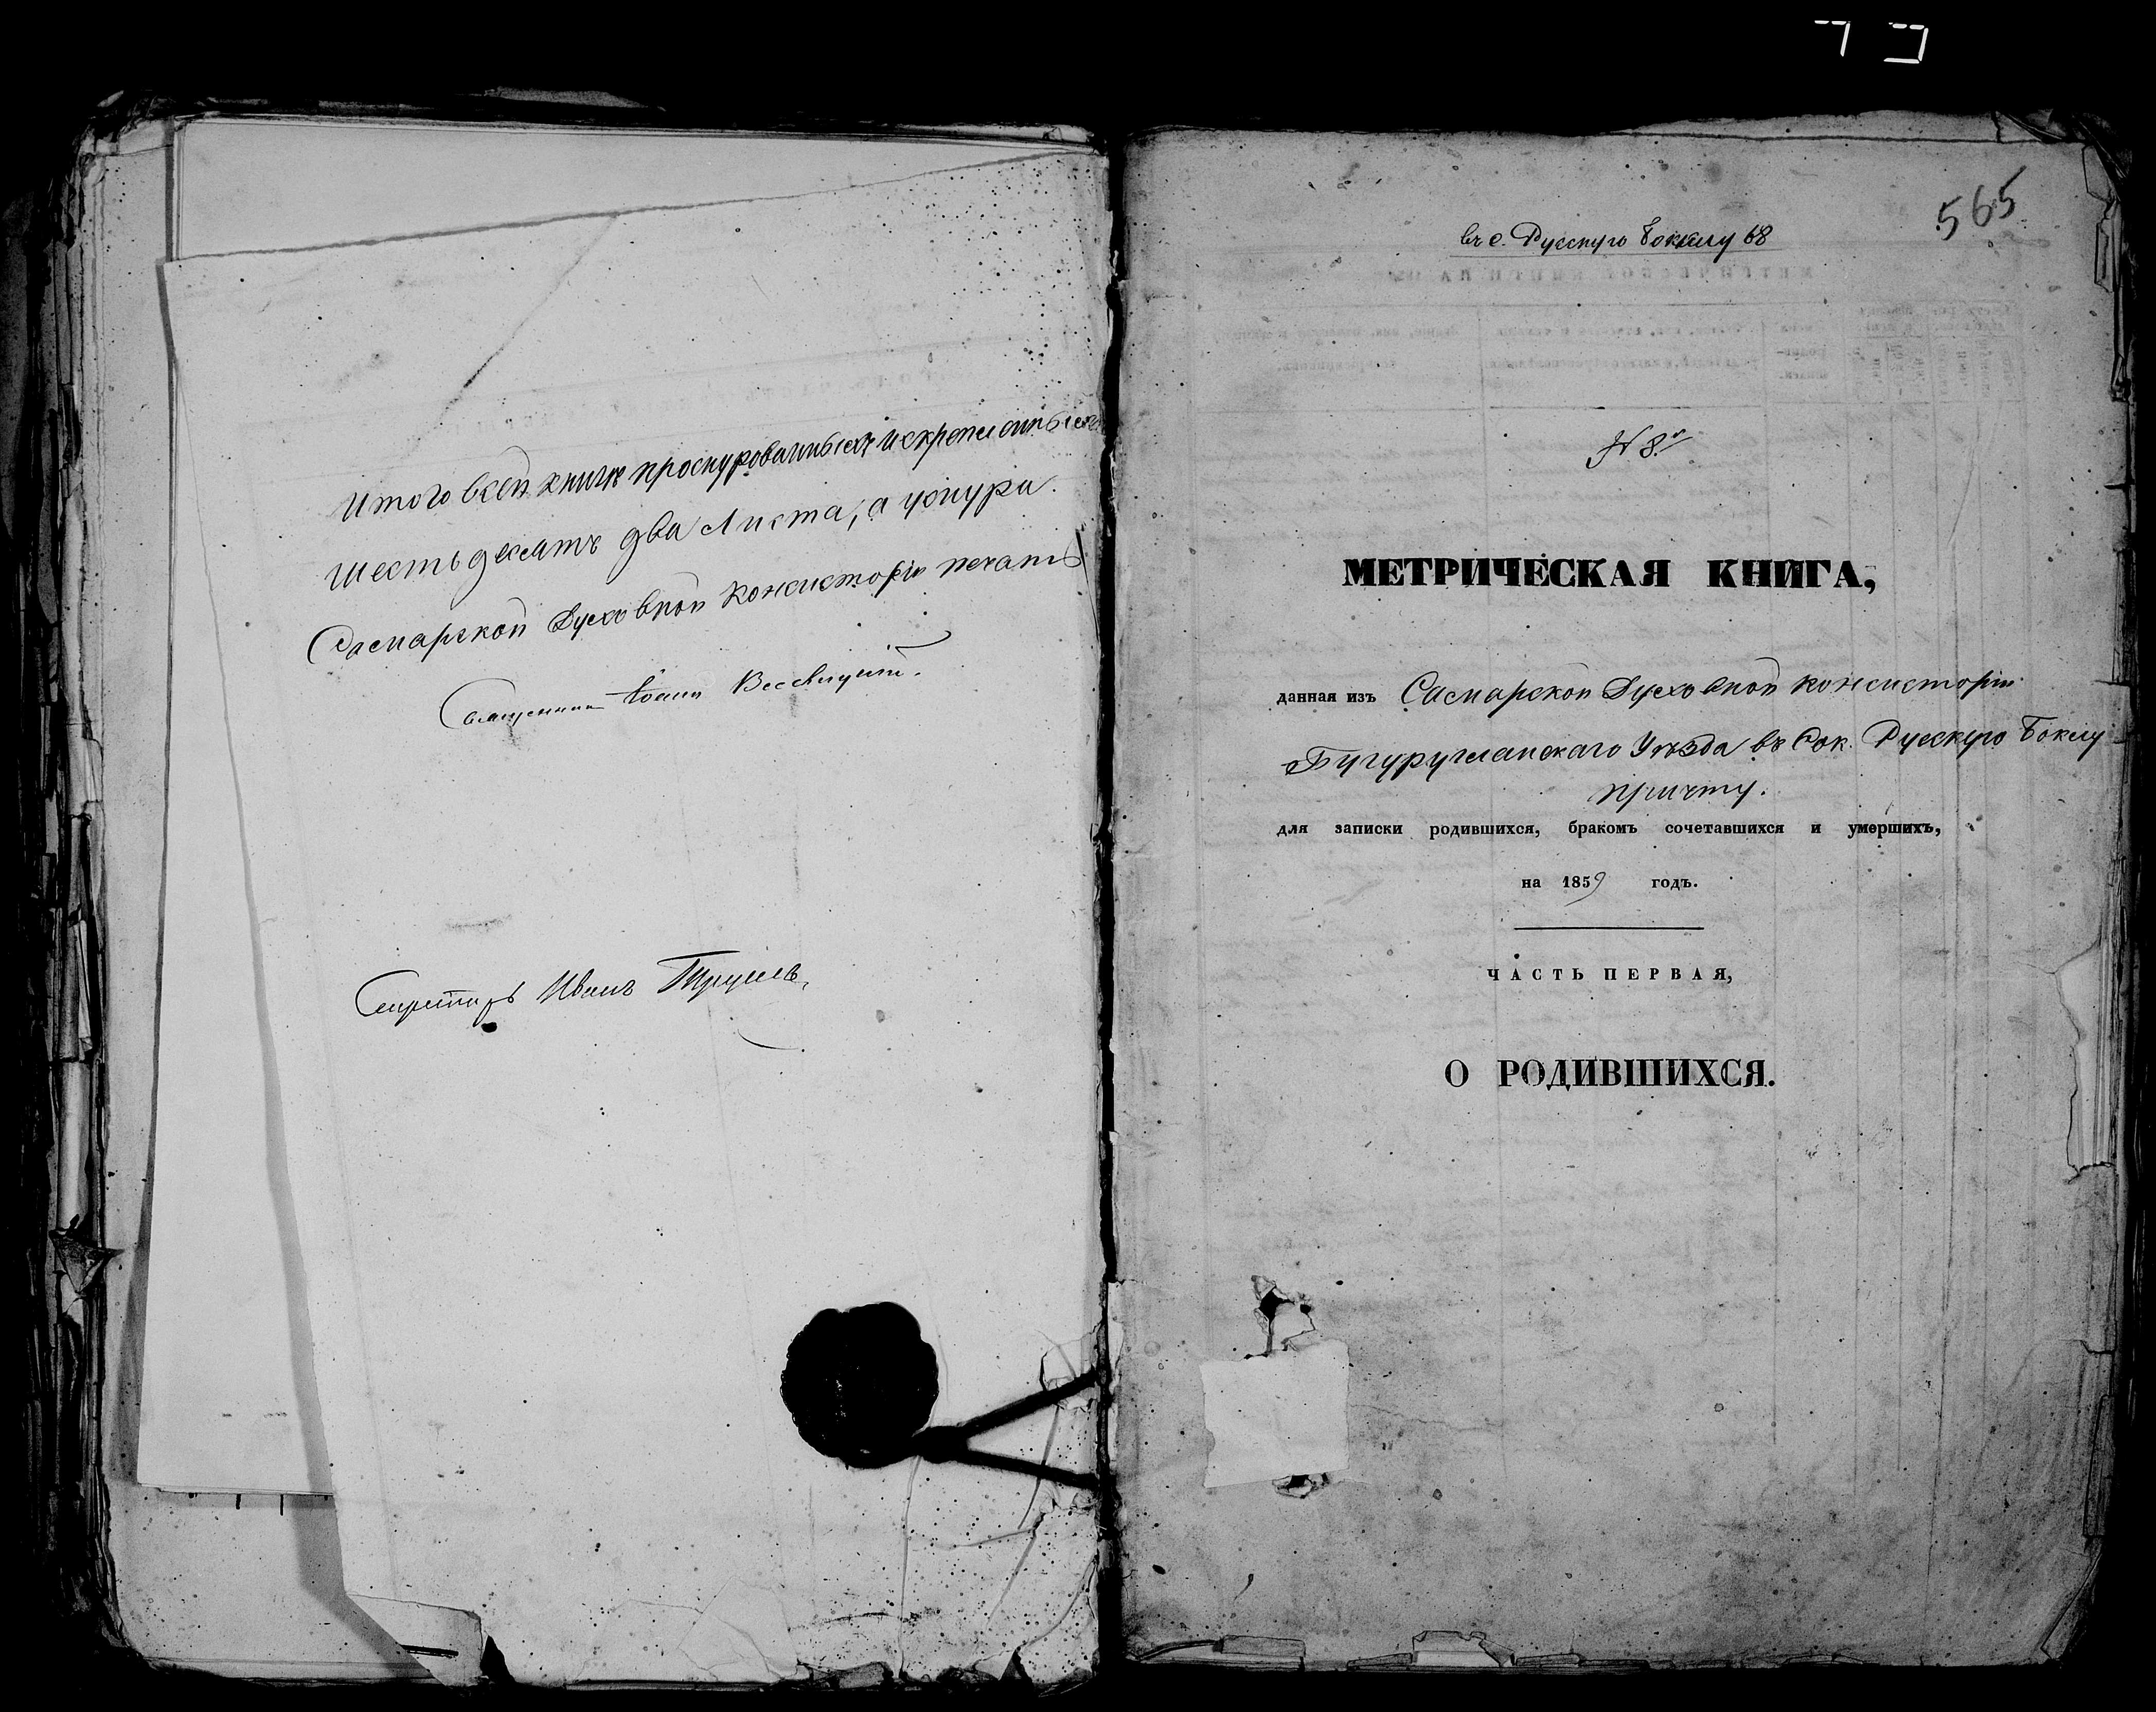 Итого всей книге прошнурованныхъ и скрепленныхъ
шестьдесятъ два листа, а у шнура
Самарской Духовной Консисторіи печать
Священникъ Іоаннъ
Секретарь Иванъ
565
въ с. Русскую Боклу 68
№ 8.й
МЕТРИЧЕСКАЯ КНИГА,
данная изъ Самарской Духовной Консисторіи
Бугурусланскаго Уѣзда въ Сок. Русскую Боклу
причту.
для записки родившихся, бракомъ сочетавшихся и умершихъ,
на 1859 годъ.
ЧАСТЬ ПЕРВАЯ,
О РОДИВШИХСЯ.